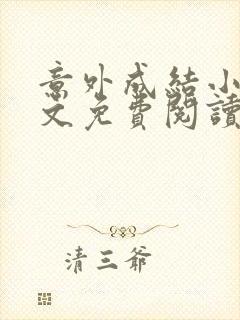 意外成結小
文免費閱讀
清三爷